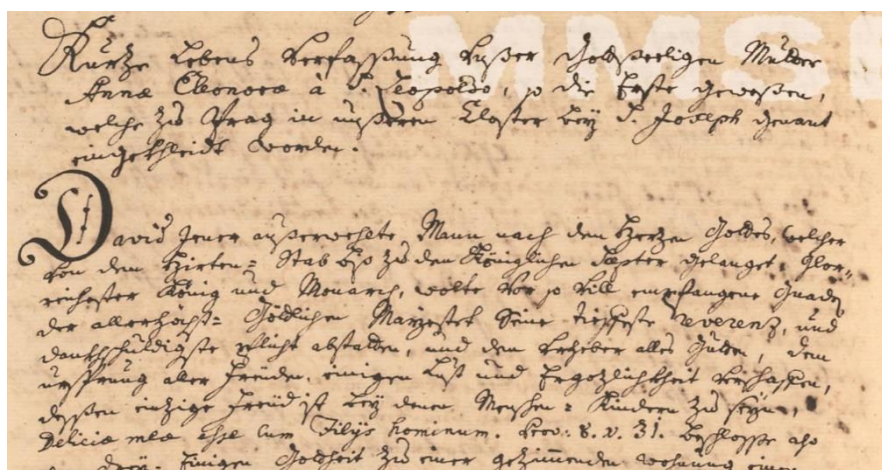 Kurtze Lebens Verfassung unser Gottseeligen Mutter
Annæ Eleonoræ à S. Leopoldo, so die Erste geweßen,
welche zu Prag in unßeren Closter bey S. Joseph genant
eingekleidt worden.
David jener außerwehlte Mann nach den Hertzen Gottes, welcher
von dem Hirten= Stab biß zu den Königlichen Scepter gelanget, Glor=
reichester König und Monarch, wolte vor so vill empfangene Gnaden
der allerhöchst= Göttlichen Mayestet seine tieffeste reverentz, und
danckhschuldigste pflicht abstatten, und dem Urheber alles Gutten, dem
ursprung aller Freuden, einigen Lust und Ergötzlichkheit verschaffen,
deßen eintzige Freud ist bey denen Menschen= Kindern zu seyn,
Deliciæ meæ esse cum Filijs hominum. Prov: 8. v. 31. beschlosse also
Drey= Einigen Gottheit zu einer gezimmenden wohnung einen